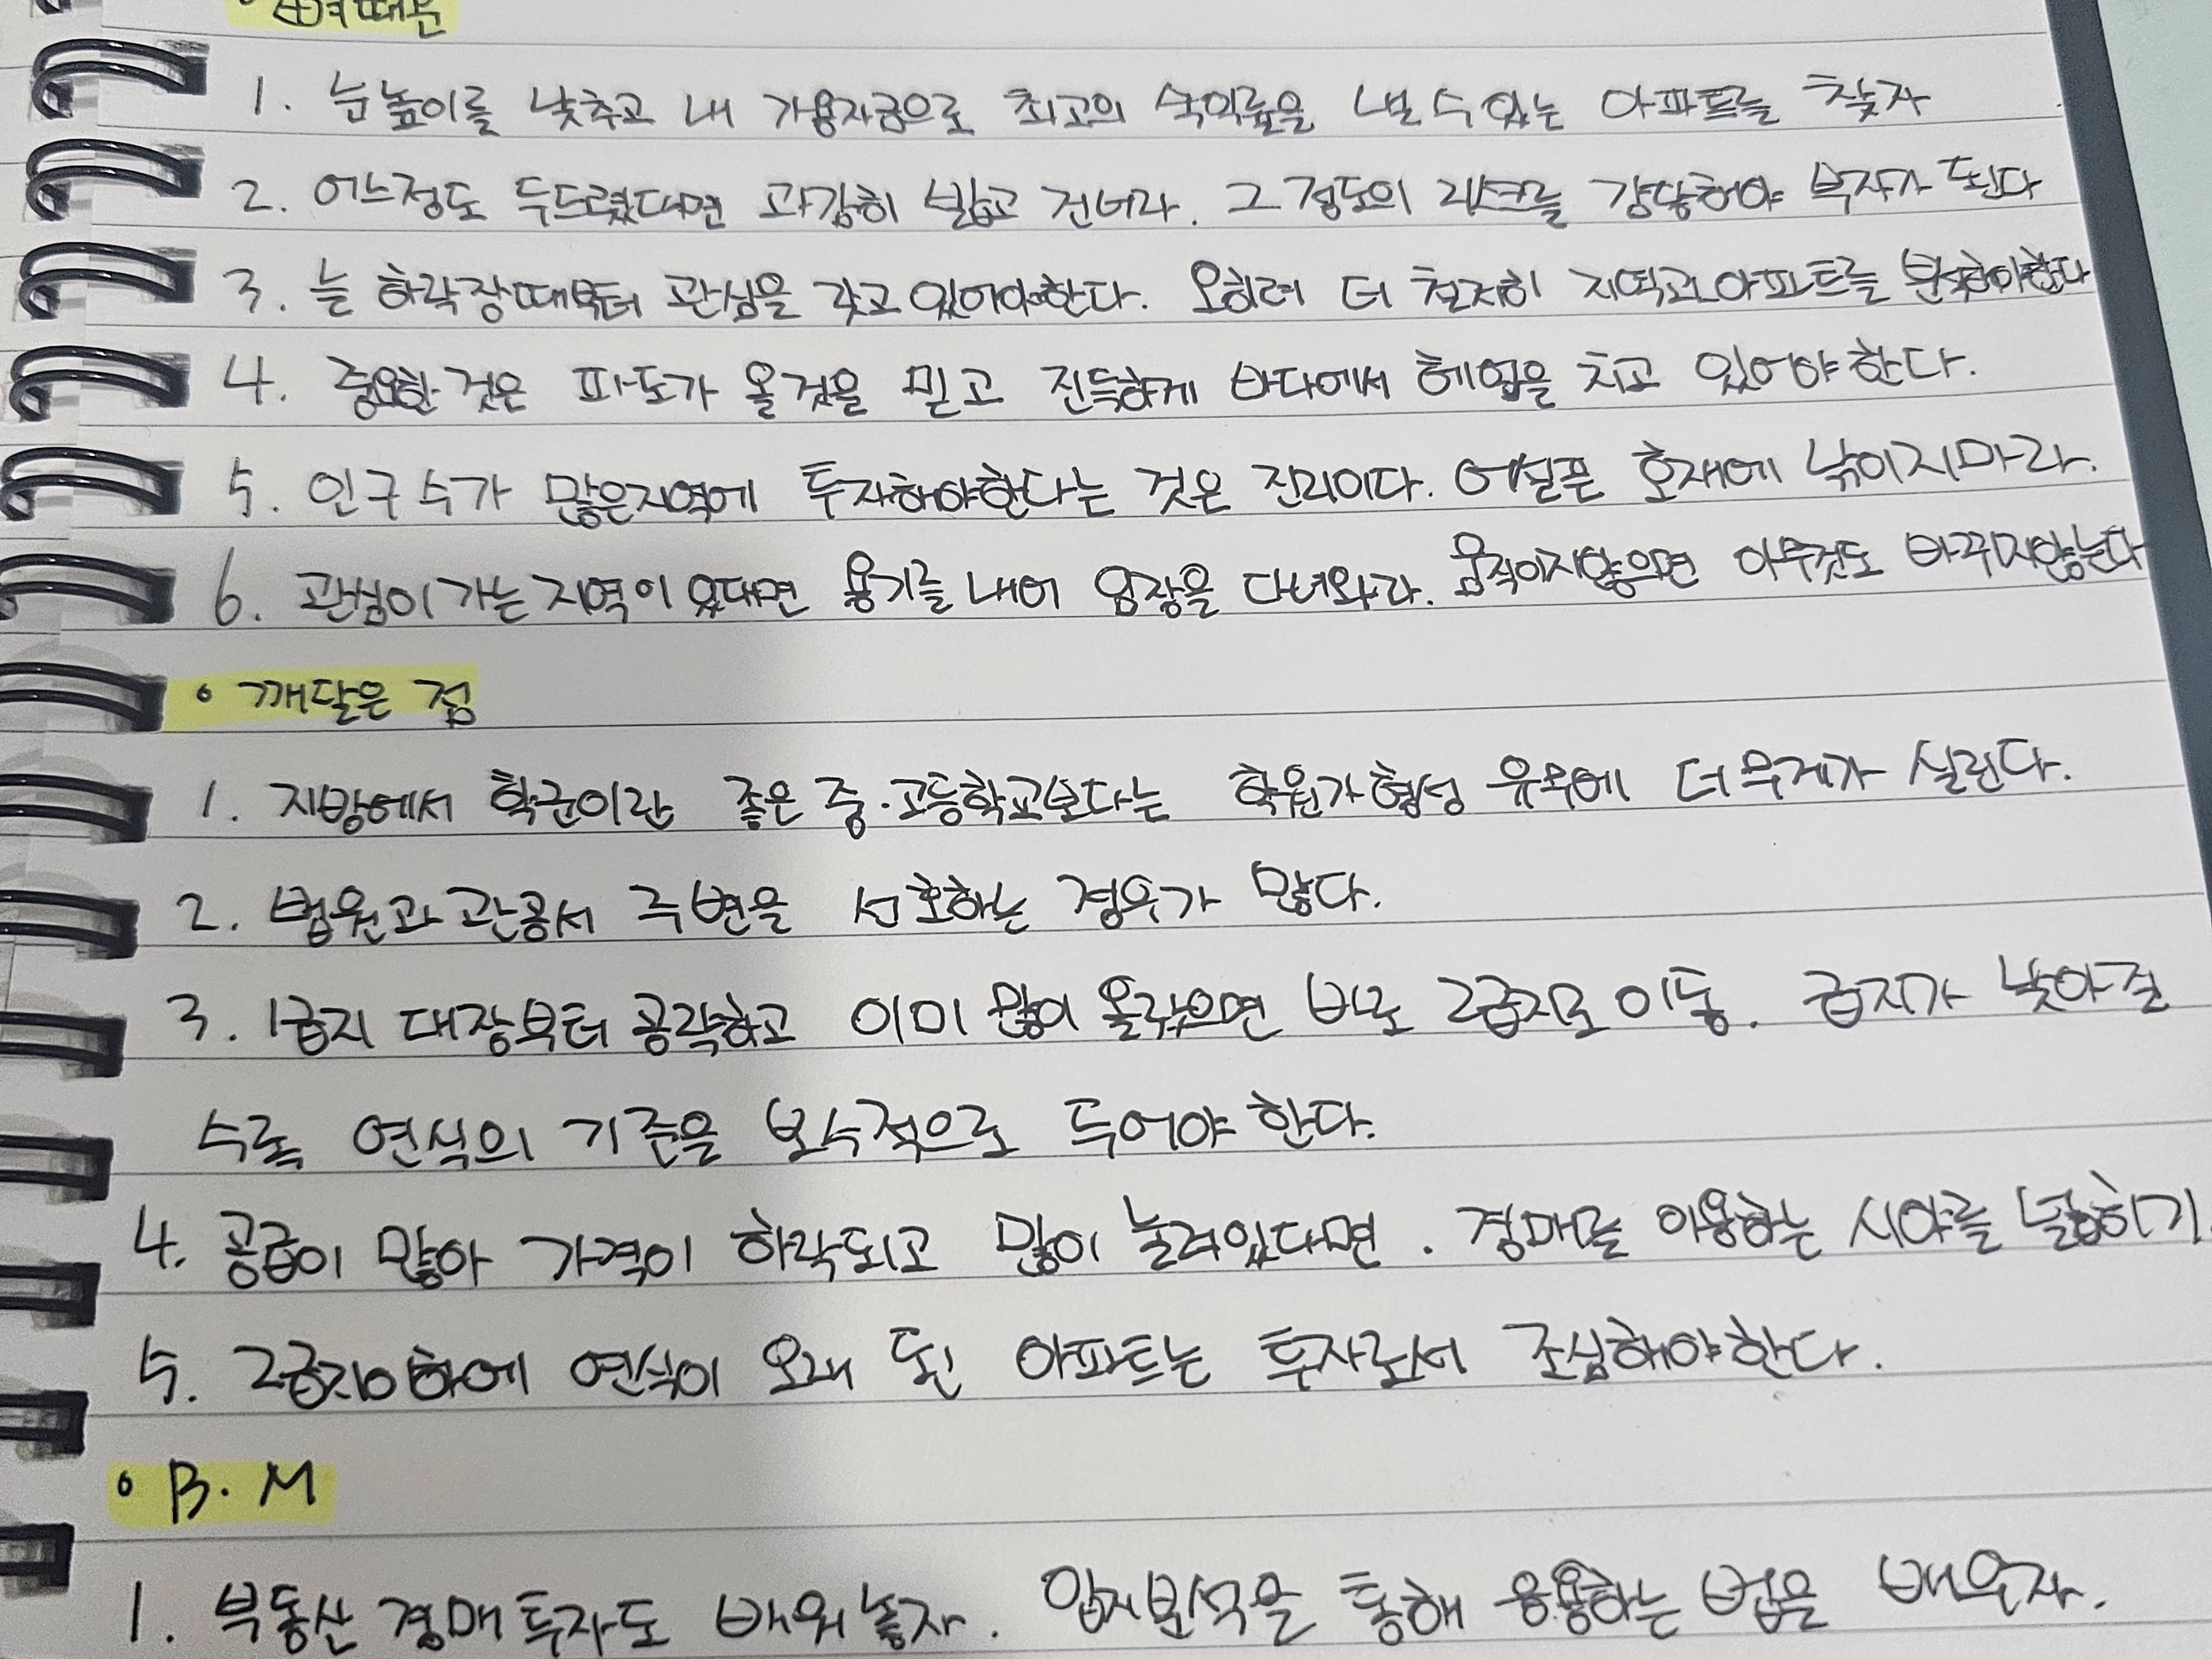 1. 눈높이를 낮추고 내 가용자금으로 최고의 수익률을 낼 수 있는 아파트를 찾자
2. 어느정도 두드렸다면 과감히 밟고 건너라. 그 정도의 리스크를 감당해야 부자가 된다
3. 늘 하락장때부터 관심을 갖고 있어야한다. 오히려 더 철저히 지역과 아파트를 분석해야한다
4. 중요한 것은 파도가 올것을 믿고 진득하게 바다에서 헤엄을 치고 있어야 한다.
5. 인구수가 많은지역에 투자해야한다는 것은 진리이다. 어설픈 호재에 낚이지마라.
6. 관심이 가는 지역이 있다면 용기를 내어 임장을 다녀와라. 움직이지않으면 아무것도 바뀌지않는다
• 깨달은 점
1. 지방에서 학군이란 좋은 중·고등학교보다는 학원가형성 유무에 더 무게가 실린다.
2. 법원과 관공서 주변을 선호하는 경우가 많다.
3. 1급지 대장부터 공략하고 이미 많이 올랐으면 바로 2급지로 이동. 급지가 낮아질
수록 연식의 기준을 보수적으로 두어야 한다.
4. 공급이 많아 가격이 하락되고 많이 눌려있다면. 경매를 이용하는 시야를 넓히기.
5. 2급지이하에 연식이 오래 된 아파트는 투자로서 조심해야한다.
• B.M
1. 부동산 경매투자도 배워놓자. 입지분석을 통해 응용하는 법을 배우자.